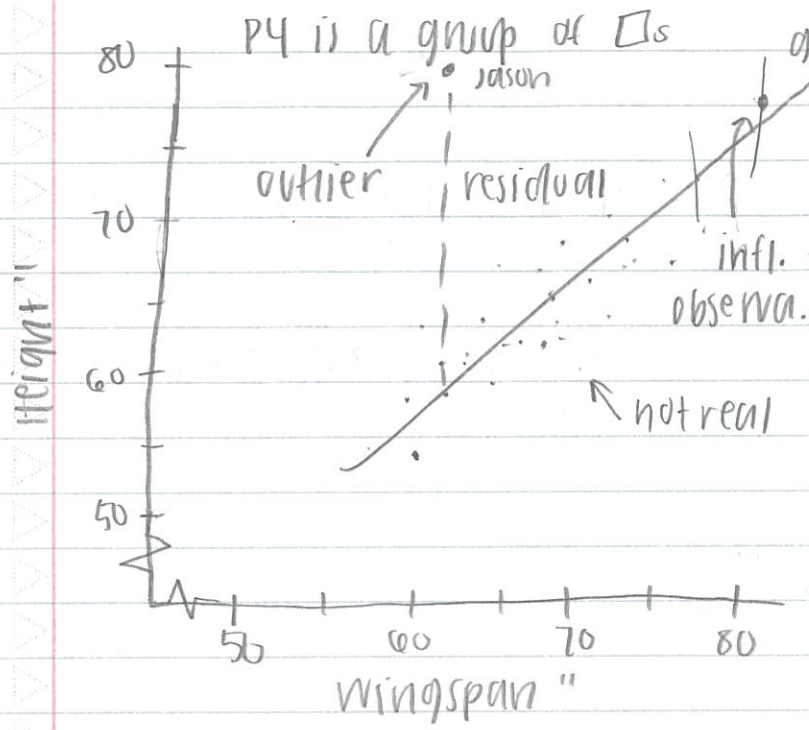 P4 is a group of □s
80
Jason
outlier
residual
70
infl.
observa.
Height "
60
not real
50
50
60
70
80
wingspan "